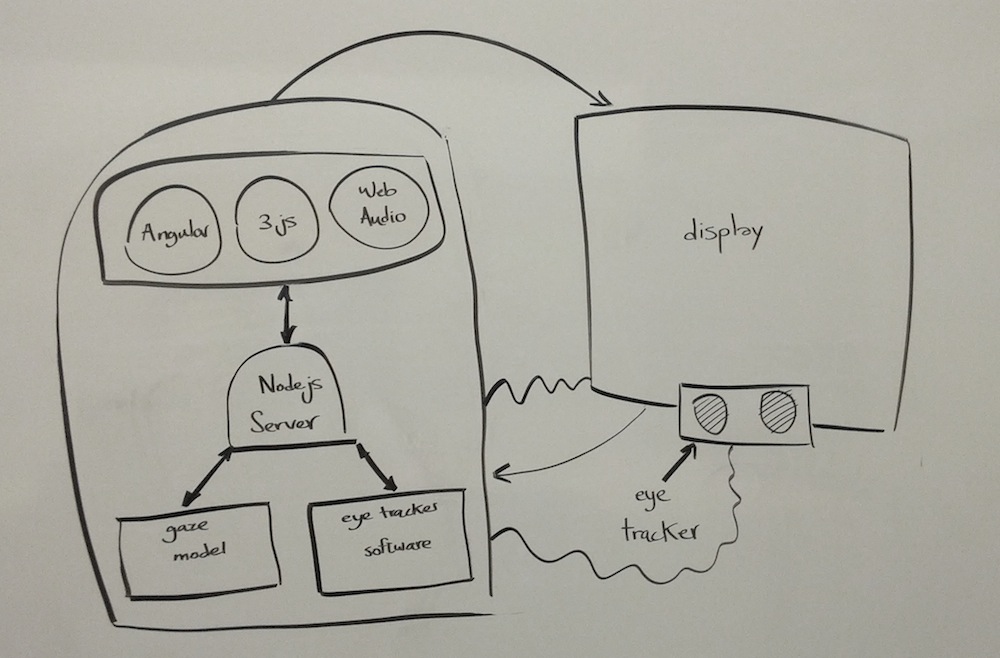 Angular
3js
Web
Audio
Nodejs
Server
gaze
model
eye tracker
software
display
eye
tracker